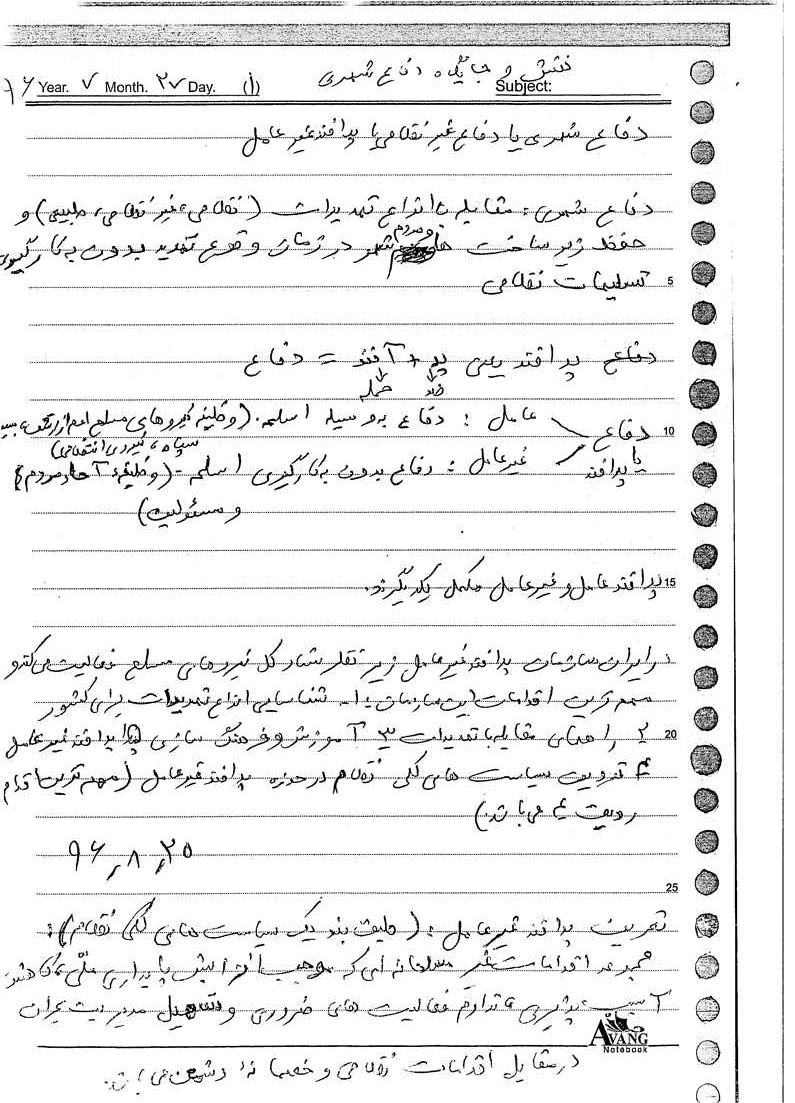 نقش و جایگاه دفاع شهری
۹۶ Year. ۷ Month. ۲۷ Day. (۱) Subject:
دفاع شهری یا دفاع غیر نظامی یا پدافند غیر عامل
دفاع شهری: مقابله با انواع تهدیدات (نظامی، غیر نظامی، طبیعی) و
حفظ زیر ساخت ها و مردم شهر در زمان وقوع تهدید بدون به کارگیری
تسلیحات نظامی 5
دفاع پدافند یعنی پد + آفند = دفاع
ضد حمله
عامل: دفاع به وسیله اسلحه. (وظیفه نیروهای مسلح اعم از ارتش، بسیج
دفاع 10
سپاه، نیروی انتظامی)
یا پدافند غیر عامل: دفاع بدون به کارگیری اسلحه - (وظیفۀ آحاد مردم
و مسئولین)
پدافند عامل و غیر عامل مکمل یکدیگرند. 15
در ایران سازمان پدافند غیر عامل زیر نظر ستاد کل نیروهای مسلح فعالیت می کند و
مهم ترین اقدامات این سازمان: ۱- شناسایی انواع تهدیدات برای کشور
۲ راههای مقابله با تهدیدات ۳ آموزش و فرهنگ سازی پدافند غیر عامل 20
۴ تدوین سیاست های کلی نظام در حوزه پدافند غیر عامل (مهم ترین اقدام
ردیف ۴ می باشد)
۹۶٫۸٫۲۵
25
تعریف پدافند غیر عامل: (طبق بند یک سیاست های کلی نظام):
مجموعه اقدامات غیر مسلحانه ای که موجب افزایش پایداری ملّی، کاهش
آسیب پذیری، تداوم فعالیت های ضروری و تسهیل مدیریت بحران
AVANG
Notebook
در مقابل اقدامات نظامی و خصمانۀ دشمن می باشد.